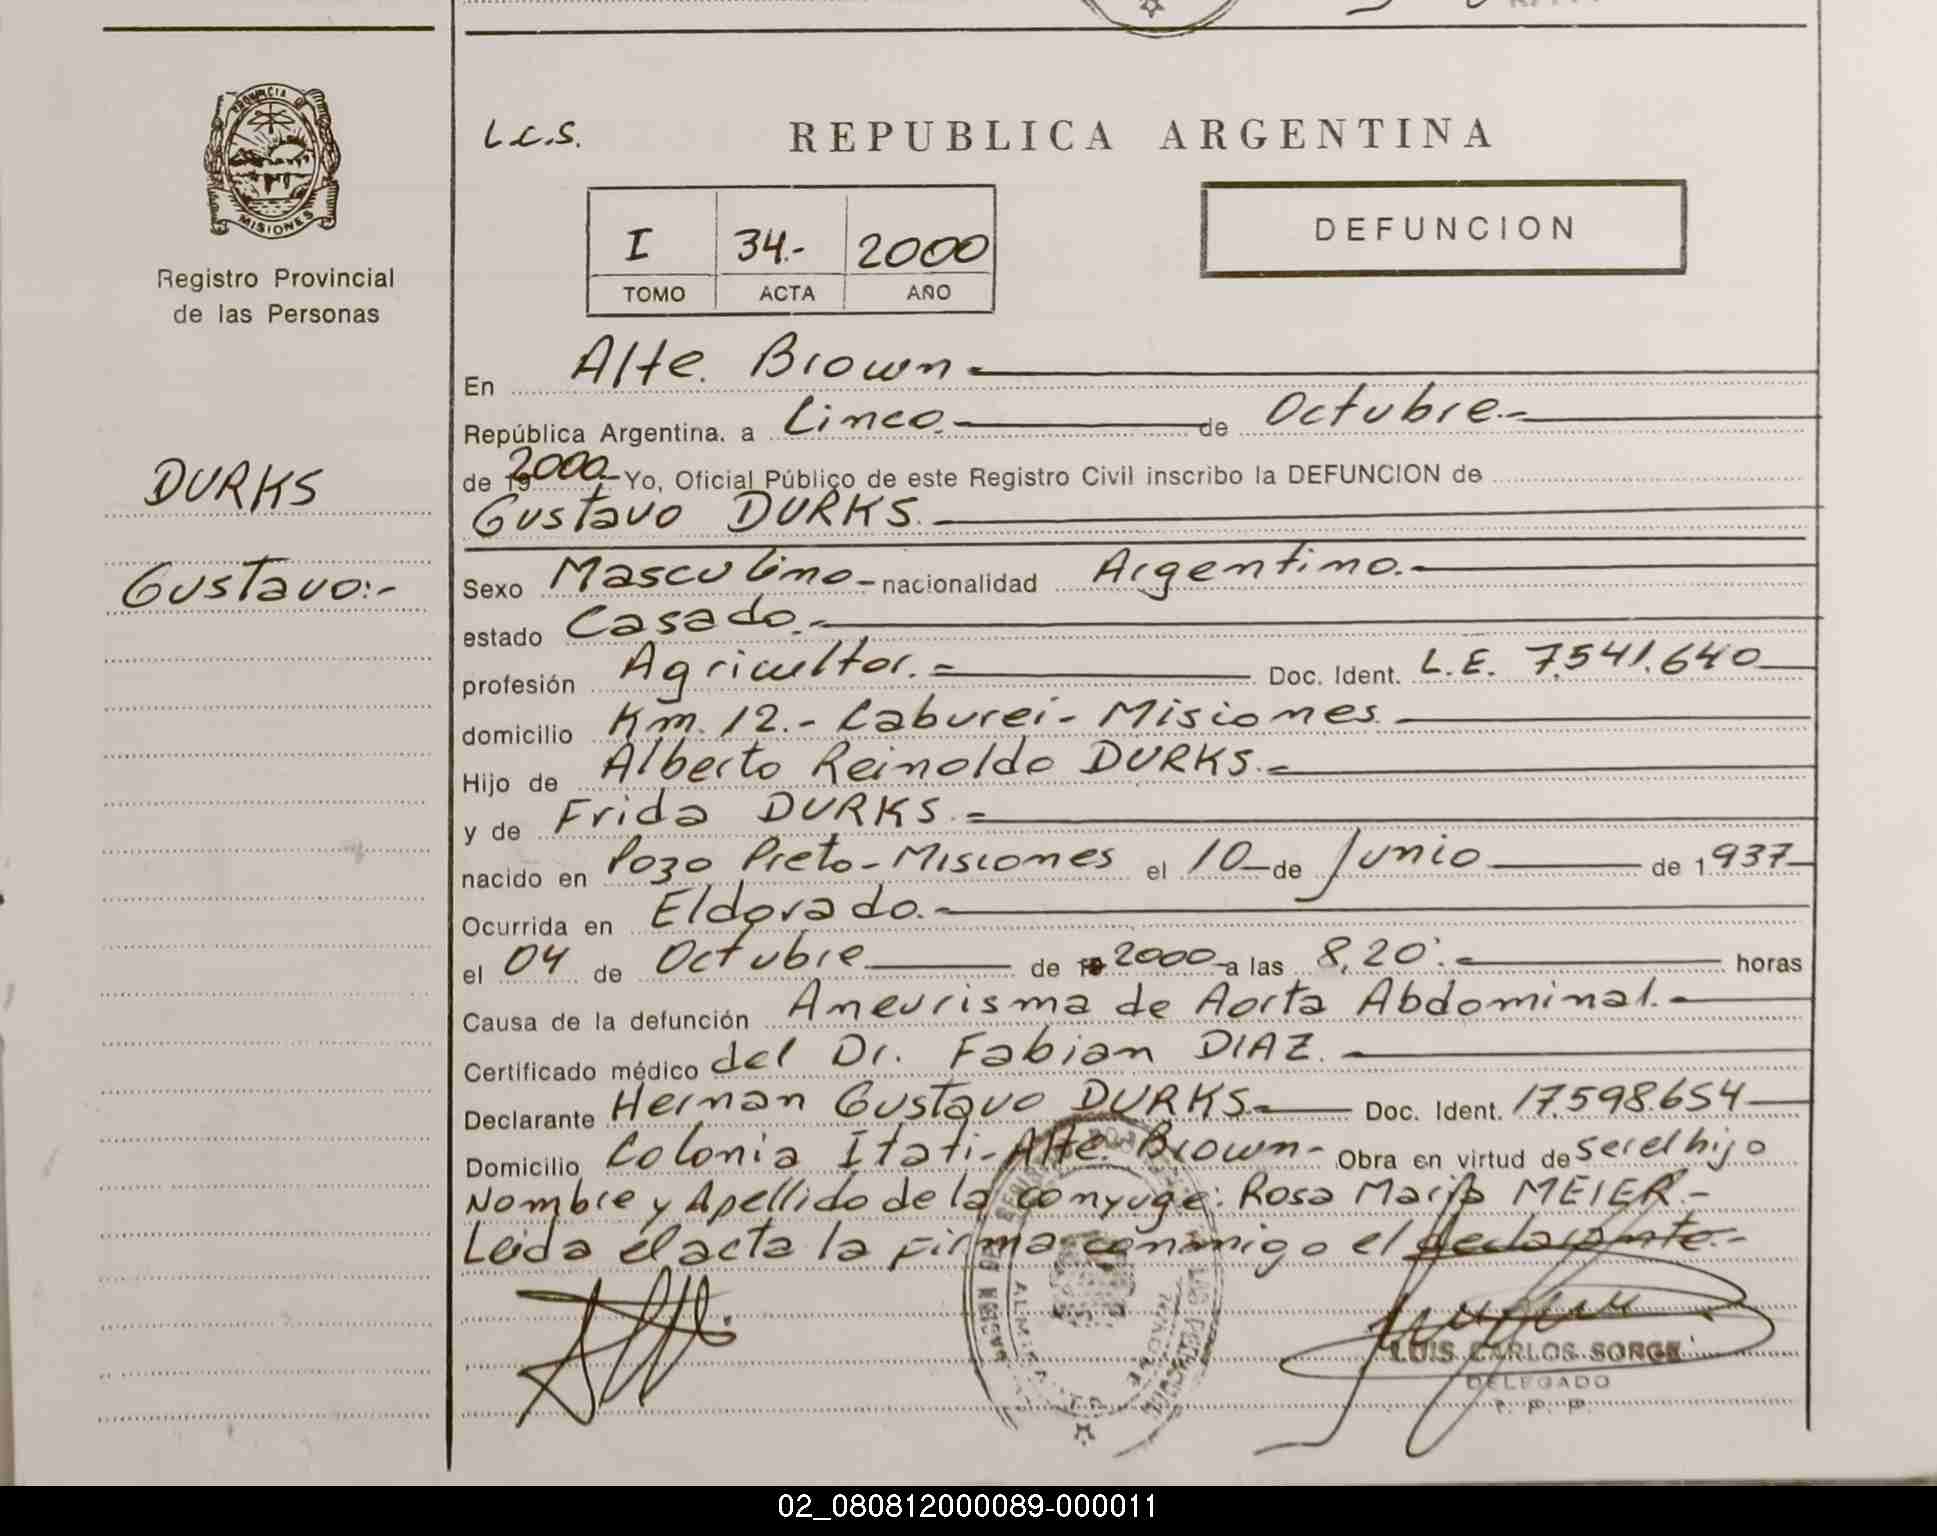 PROVINCIA DE
MISIONES
Registro Provincial
de las Personas
DURKS
Gustavo:-
L.C.S.
REPUBLICA ARGENTINA
I 34.- 2000
TOMO ACTA AÑO
DEFUNCION
En Alte. Brown.
República Argentina, a Cinco.- de Octubre.-
de 19 2000.- Yo, Oficial Público de este Registro Civil inscribo la DEFUNCION de
Gustavo DURKS.
Sexo Masculino.- nacionalidad Argentino.-
estado Casado.-
profesión Agricultor.= Doc. Ident. L.E. 7.541.640
domicilio Km. 12.- Caburei- Misiones.
Hijo de Alberto Reinoldo DURKS.=
y de Frida DURKS.=
nacido en Pozo Preto-Misiones el 10 de Junio de 1937
Ocurrida en Eldorado.-
el 04 de Octubre de 2000 a las 8,20: horas
Causa de la defunción Aneurisma de Aorta Abdominal.-
Certificado médico del Dr. Fabian DIAZ.
Declarante Hernan Gustavo DURKS. Doc. Ident. 17.598.654
Domicilio Colonia Itati-Alte. Brown- Obra en virtud de ser el hijo
Nombre y Apellido de la conyuge: Rosa Maria MEIER.-
Leida el acta la firma conmigo el declarante.-
LUIS CARLOS SORGE
DELEGADO
R. P. P.
02_080812000089-000011